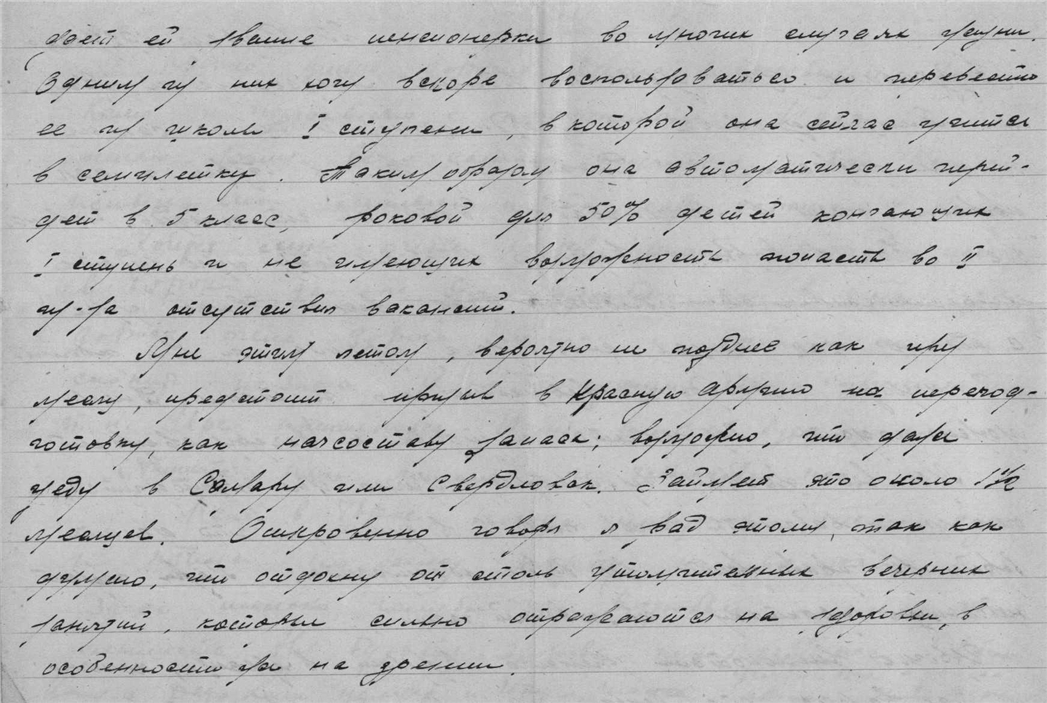 дает ей звание пенсионерки во многих случаях жизни.
Одним из них хочу вскоре воспользоваться и перевести
ее из школы I ступени, в которой она сейчас учится
в семилетку. Таким образом она автоматически перей-
дет в 5 класс, роковой для 50% детей кончающих
I ступень и не имеющих возможность попасть во II
из-за отсутствия вакансий.
Мне этим летом, вероятно не позднее как через
месяц, предстоит призыв в Красную Армию на переподготовку
готовку, как начсоставу запаса; возможно, что даже
уеду в Самару или Свердловск. Займет это около 1½
месяцев. Откровенно говоря я рад этому, так как
думаю, что отдохну от столь утомительных вечерних
занятий, которые сильно отражаются на здоровьи, в
особенности на зрении.